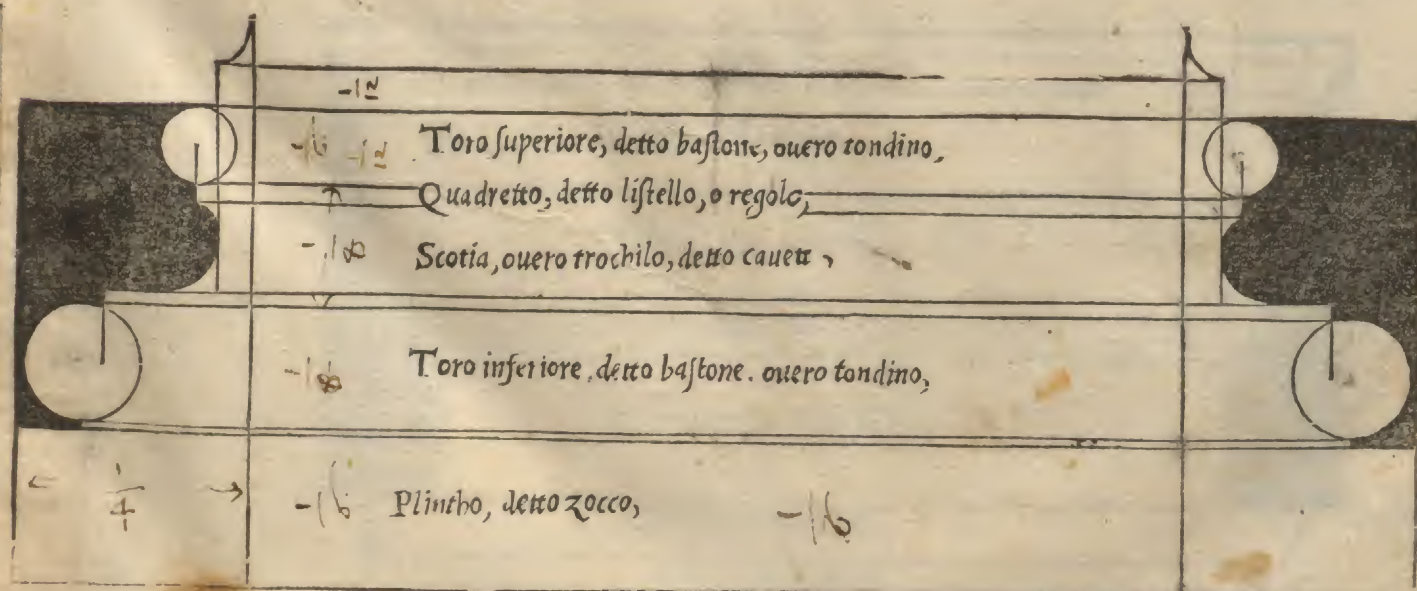 Toro ſuperiore, detto baſtone, ouero tondino,
Quadretto, detto liſtello, o regolo,
Scotia, ouero trochilo, detto cauett,
Toro inferiore, detto baſtone. ouero tondino,
1/4
Plintho, detto zocco,